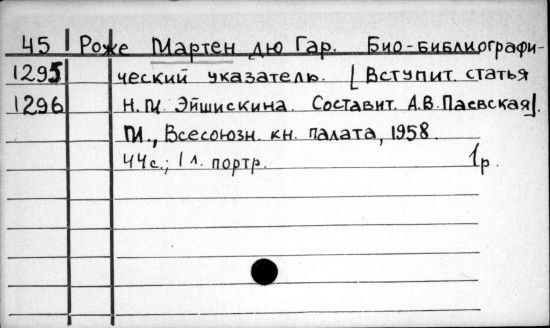 45 Роже Мартен дю Гар. Био-библиографи-
1295 ческий указатель. [Вступит. статья
1296 Н.М. Эйшискина. Составит. А.В. Паевская].
М., Всесоюзн. кн. палата, 1958.
44с.; 1 л. портр. 1р.